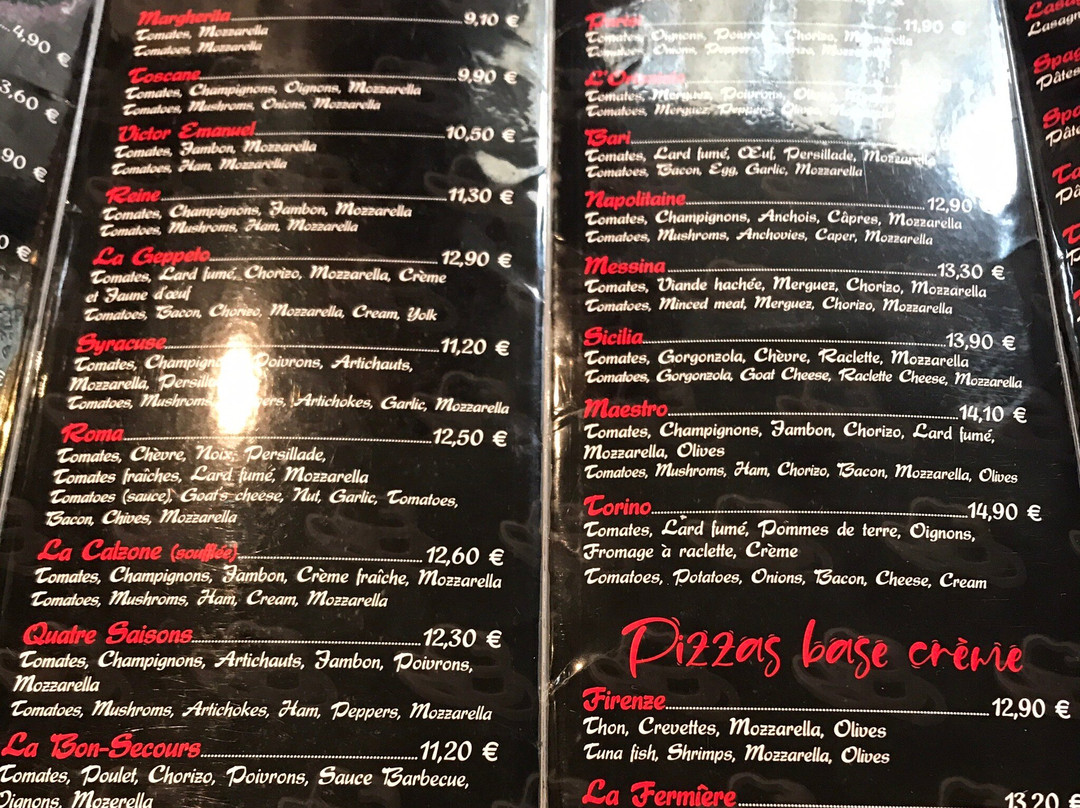 4,90 €
3,60 €
90 €
0 €
Margherita 9,10 €
Tomates, Mozzarella
Tomatoes, Mozzarella
Toscane 9,90 €
Tomates, Champignons, Oignons, Mozzarella
Tomatoes, Mushroms, Onions, Mozzarella
Victor Emanuel 10,50 €
Tomates, Jambon, Mozzarella
Tomatoes, Ham, Mozzarella
Reine 11,30 €
Tomates, Champignons, Jambon, Mozzarella
Tomatoes, Mushroms, Ham, Mozzarella
La Geppeto 12,90 €
Tomates, Lard fumé, Chorizo, Mozzarella, Crème
et Jaune d'œuf
Tomatoes, Bacon, Chorizo, Mozzarella, Cream, Yolk
Syracuse 11,20 €
Tomates, Poivrons, Artichauts,
Mozzarella,
Tomatoes, Artichokes, Garlic, Mozzarella
Roma 12,50 €
Tomates, Chèvre, Noix, Persillade,
Tomates fraîches, Lard fumé, Mozzarella
Tomatoes (sauce), Goat's cheese, Nut, Garlic, Tomatoes,
Bacon, Chives, Mozzarella
La Calzone (soufflée) 12,60 €
Tomates, Champignons, Jambon, Crème fraîche, Mozzarella
Tomatoes, Mushroms, Ham, Cream, Mozzarella
Quatre Saisons 12,30 €
Tomates, Champignons, Artichauts, Jambon, Poivrons,
Mozzarella
Tomatoes, Mushroms, Artichokes, Ham, Peppers, Mozzarella
La Bon-Secours 11,20 €
Tomates, Poulet, Chorizo, Poivrons, Sauce Barbecue,
Oignons, Mozerella
11,90 €
Tomates, Oignons, Poivrons, Chorizo, Mozzarella
Tomatoes, Onions, Peppers,
Tomates, Merguez, Poivrons,
Tomatoes, Merguez, Peppers,
Bari
Tomates, Lard fumé, Œuf, Persillade, Mozzarella
Tomatoes, Bacon, Egg, Garlic, Mozzarella
Napolitaine 12,90
Tomates, Champignons, Anchois, Câpres, Mozzarella
Tomatoes, Mushroms, Anchovies, Caper, Mozzarella
Messina 13,30 €
Tomates, Viande hachée, Merguez, Chorizo, Mozzarella
Tomatoes, Minced meat, Merguez, Chorizo, Mozzarella
Sicilia 13,90 €
Tomates, Gorgonzola, Chèvre, Raclette, Mozzarella
Tomatoes, Gorgonzola, Goat Cheese, Raclette Cheese, Mozzarella
Maestro 14,10 €
Tomates, Champignons, Jambon, Chorizo, Lard fumé,
Mozzarella, Olives
Tomatoes, Mushroms, Ham, Chorizo, Bacon, Mozzarella, Olives
Torino 14,90 €
Tomates, Lard fumé, Pommes de terre, Oignons,
Fromage à raclette, Crème
Tomatoes, Potatoes, Onions, Bacon, Cheese, Cream
Pizzas base crème
Firenze 12,90 €
Thon, Crevettes, Mozzarella, Olives
Tuna fish, Shrimps, Mozzarella, Olives
La Fermière 13,20 €